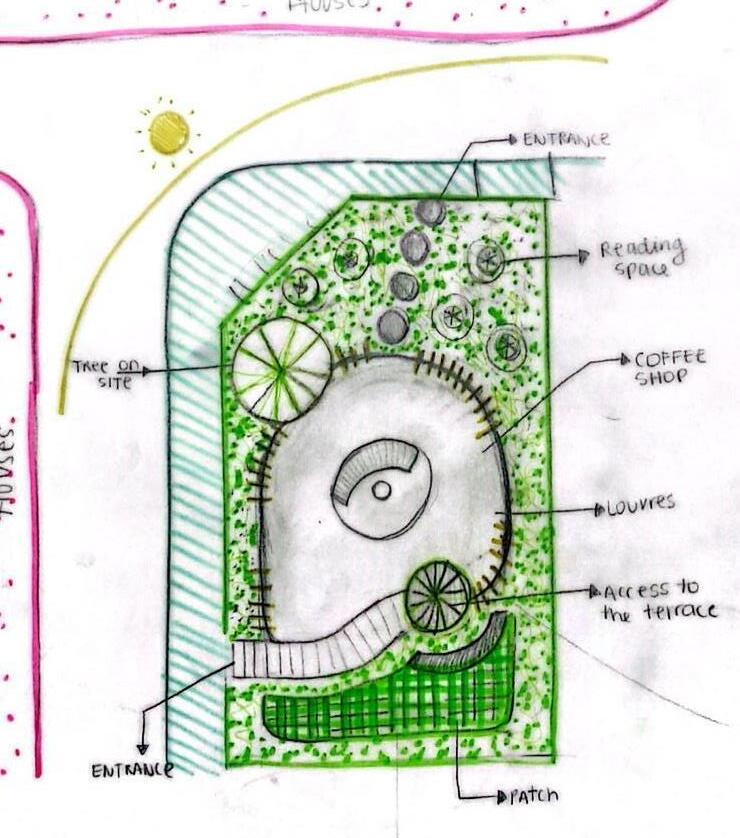 Houses.
ENTRANCE
Reading
space
Tree on
site
COFFEE
SHOP
Houses.
Louvres
Access to
the terrace
ENTRANCE
Patch